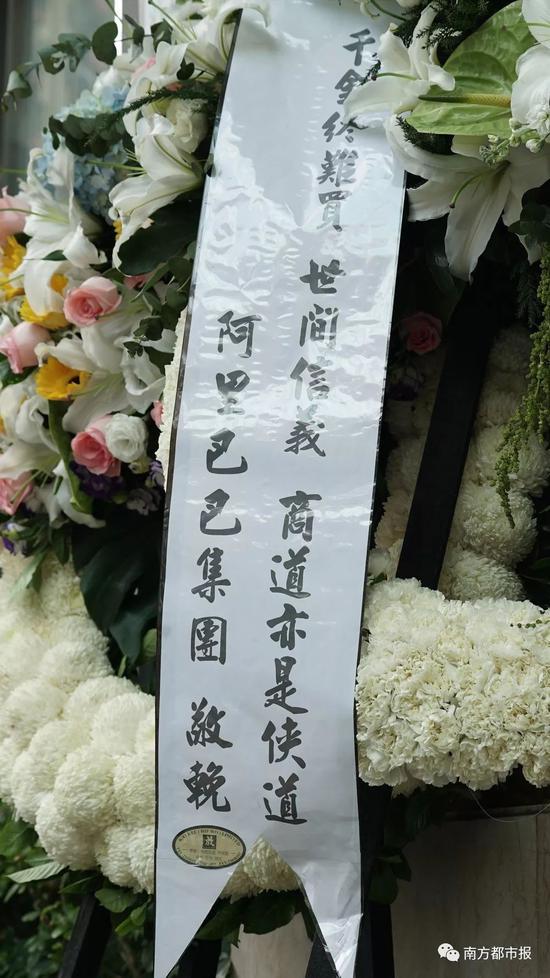 千金终難買 世间信義 商道亦是侠道
阿里巴巴集團 敬輓
放
南方都市报